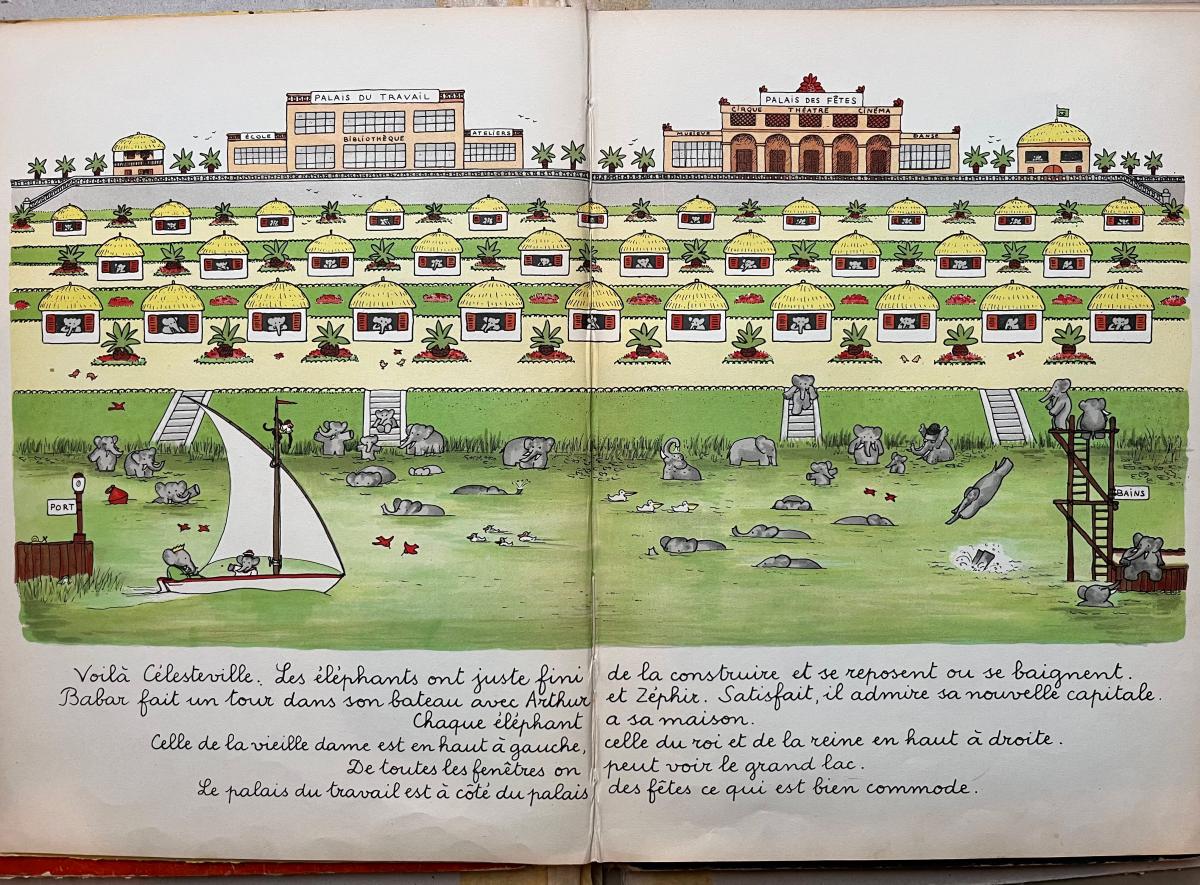 PALAIS DU TRAVAIL
ÉCOLE
BIBLIOTHÈQUE
ATELIERS
PALAIS DES FÊTES
CIRQUE THÉATRE CINÉMA
MUSIQUE
DANSE
PORT
BAINS
Voilà Célesteville. Les éléphants ont juste fini de la construire et se reposent ou se baignent.
Babar fait un tour dans son bateau avec Arthur et Zéphir. Satisfait, il admire sa nouvelle capitale.
Chaque éléphant a sa maison.
Celle de la vieille dame est en haut à gauche, celle du roi et de la reine en haut à droite.
De toutes les fenêtres on peut voir le grand lac.
Le palais du travail est à côté du palais des fêtes ce qui est bien commode.